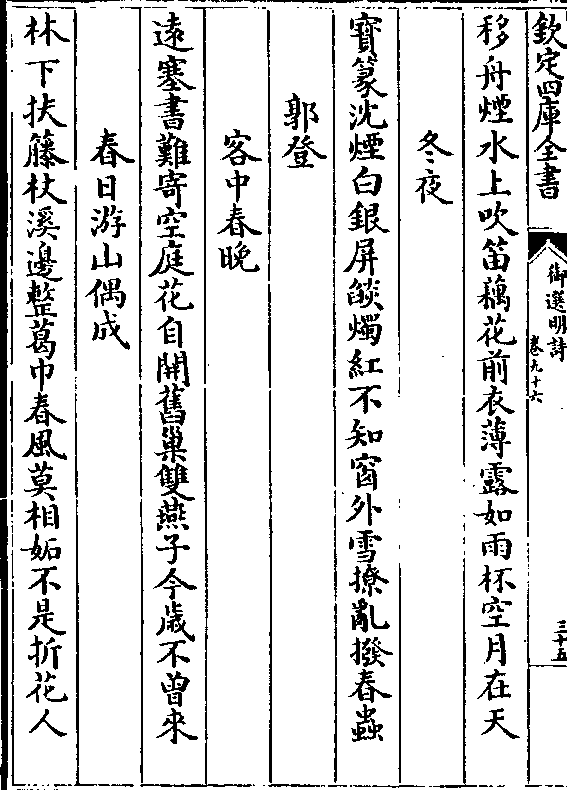 欽定四庫全書
御選明詩
卷九十六
三十五
移舟煙水上吹笛藕花前衣薄露如雨杯空月在天
冬夜
寶篆沈煙白銀屏燄燭紅不知窗外雪撩亂撥春蟲
郭登
客中春晚
遠塞書難寄空庭花自開舊巢雙燕子今歲不曾來
春日游山偶成
林下扶藤杖溪邊整葛巾春風莫相妬不是折花人